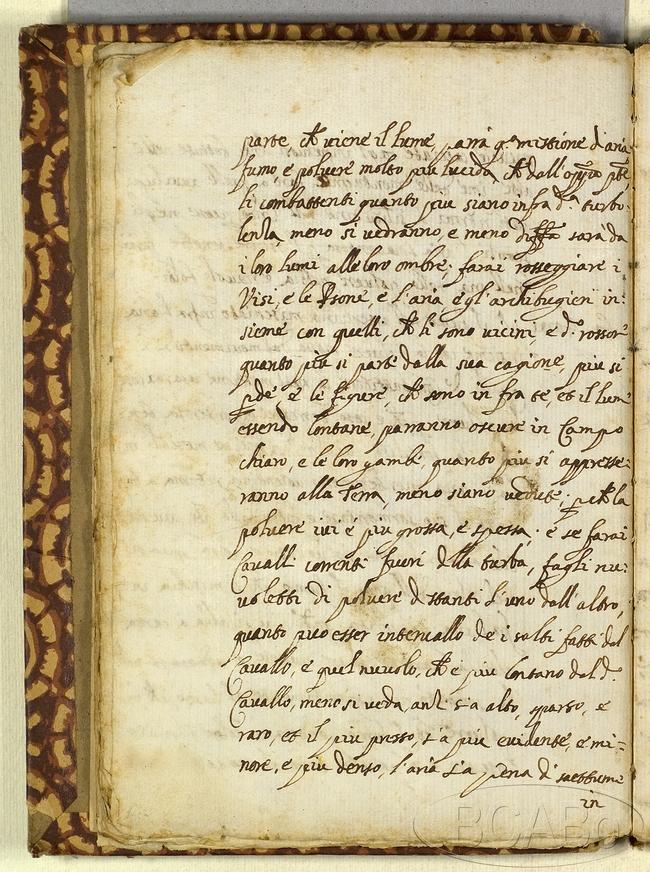 parte, ch̄ viene il lume, parrà q.ᵃ mistione d'aria
fumo, e polvere molto più lucida, ch̄ dall'opp.ᵃ p̄te
li combattenti quanto più siano infra d.ᵃ turbo-
lenza, meno si vedranno, e meno diff.ᵃ sarà da
i loro lumi alle loro ombre; farai rosseggiare i
Visi, e le P̱sone, e l'aria e gl'archibugieri in:
sieme con quelli, ch̄ li sono vicini, e d.º rossor
quanto più si parte dalla sua cagione, più si
p̱de, e le figure, ch̄ sono in fra te, et il lume
essendo lontane, parranno oscure in Campo
chiaro, e le loro gambe, quanto più si appresse:
ranno alla Terra, meno siano vedute; p̱ch̄ la
polvere ivi é più grossa, e spessa. e se farai
Cavalli correnti fuori della turba, fagli nu:
voletti di polvere distanti l'uno dall'altro,
quanto può esser intervallo de i salti fatti dal
Cavallo, e quel nuvolo, ch̄ è più lontano dal d.º
Cavallo, meno si veda, anzi sia alto, sparso, e
raro, et il più presso, sia più evidente, e mi:
nore, e più denso, l'aria sia piena di saettume
in
BCABo